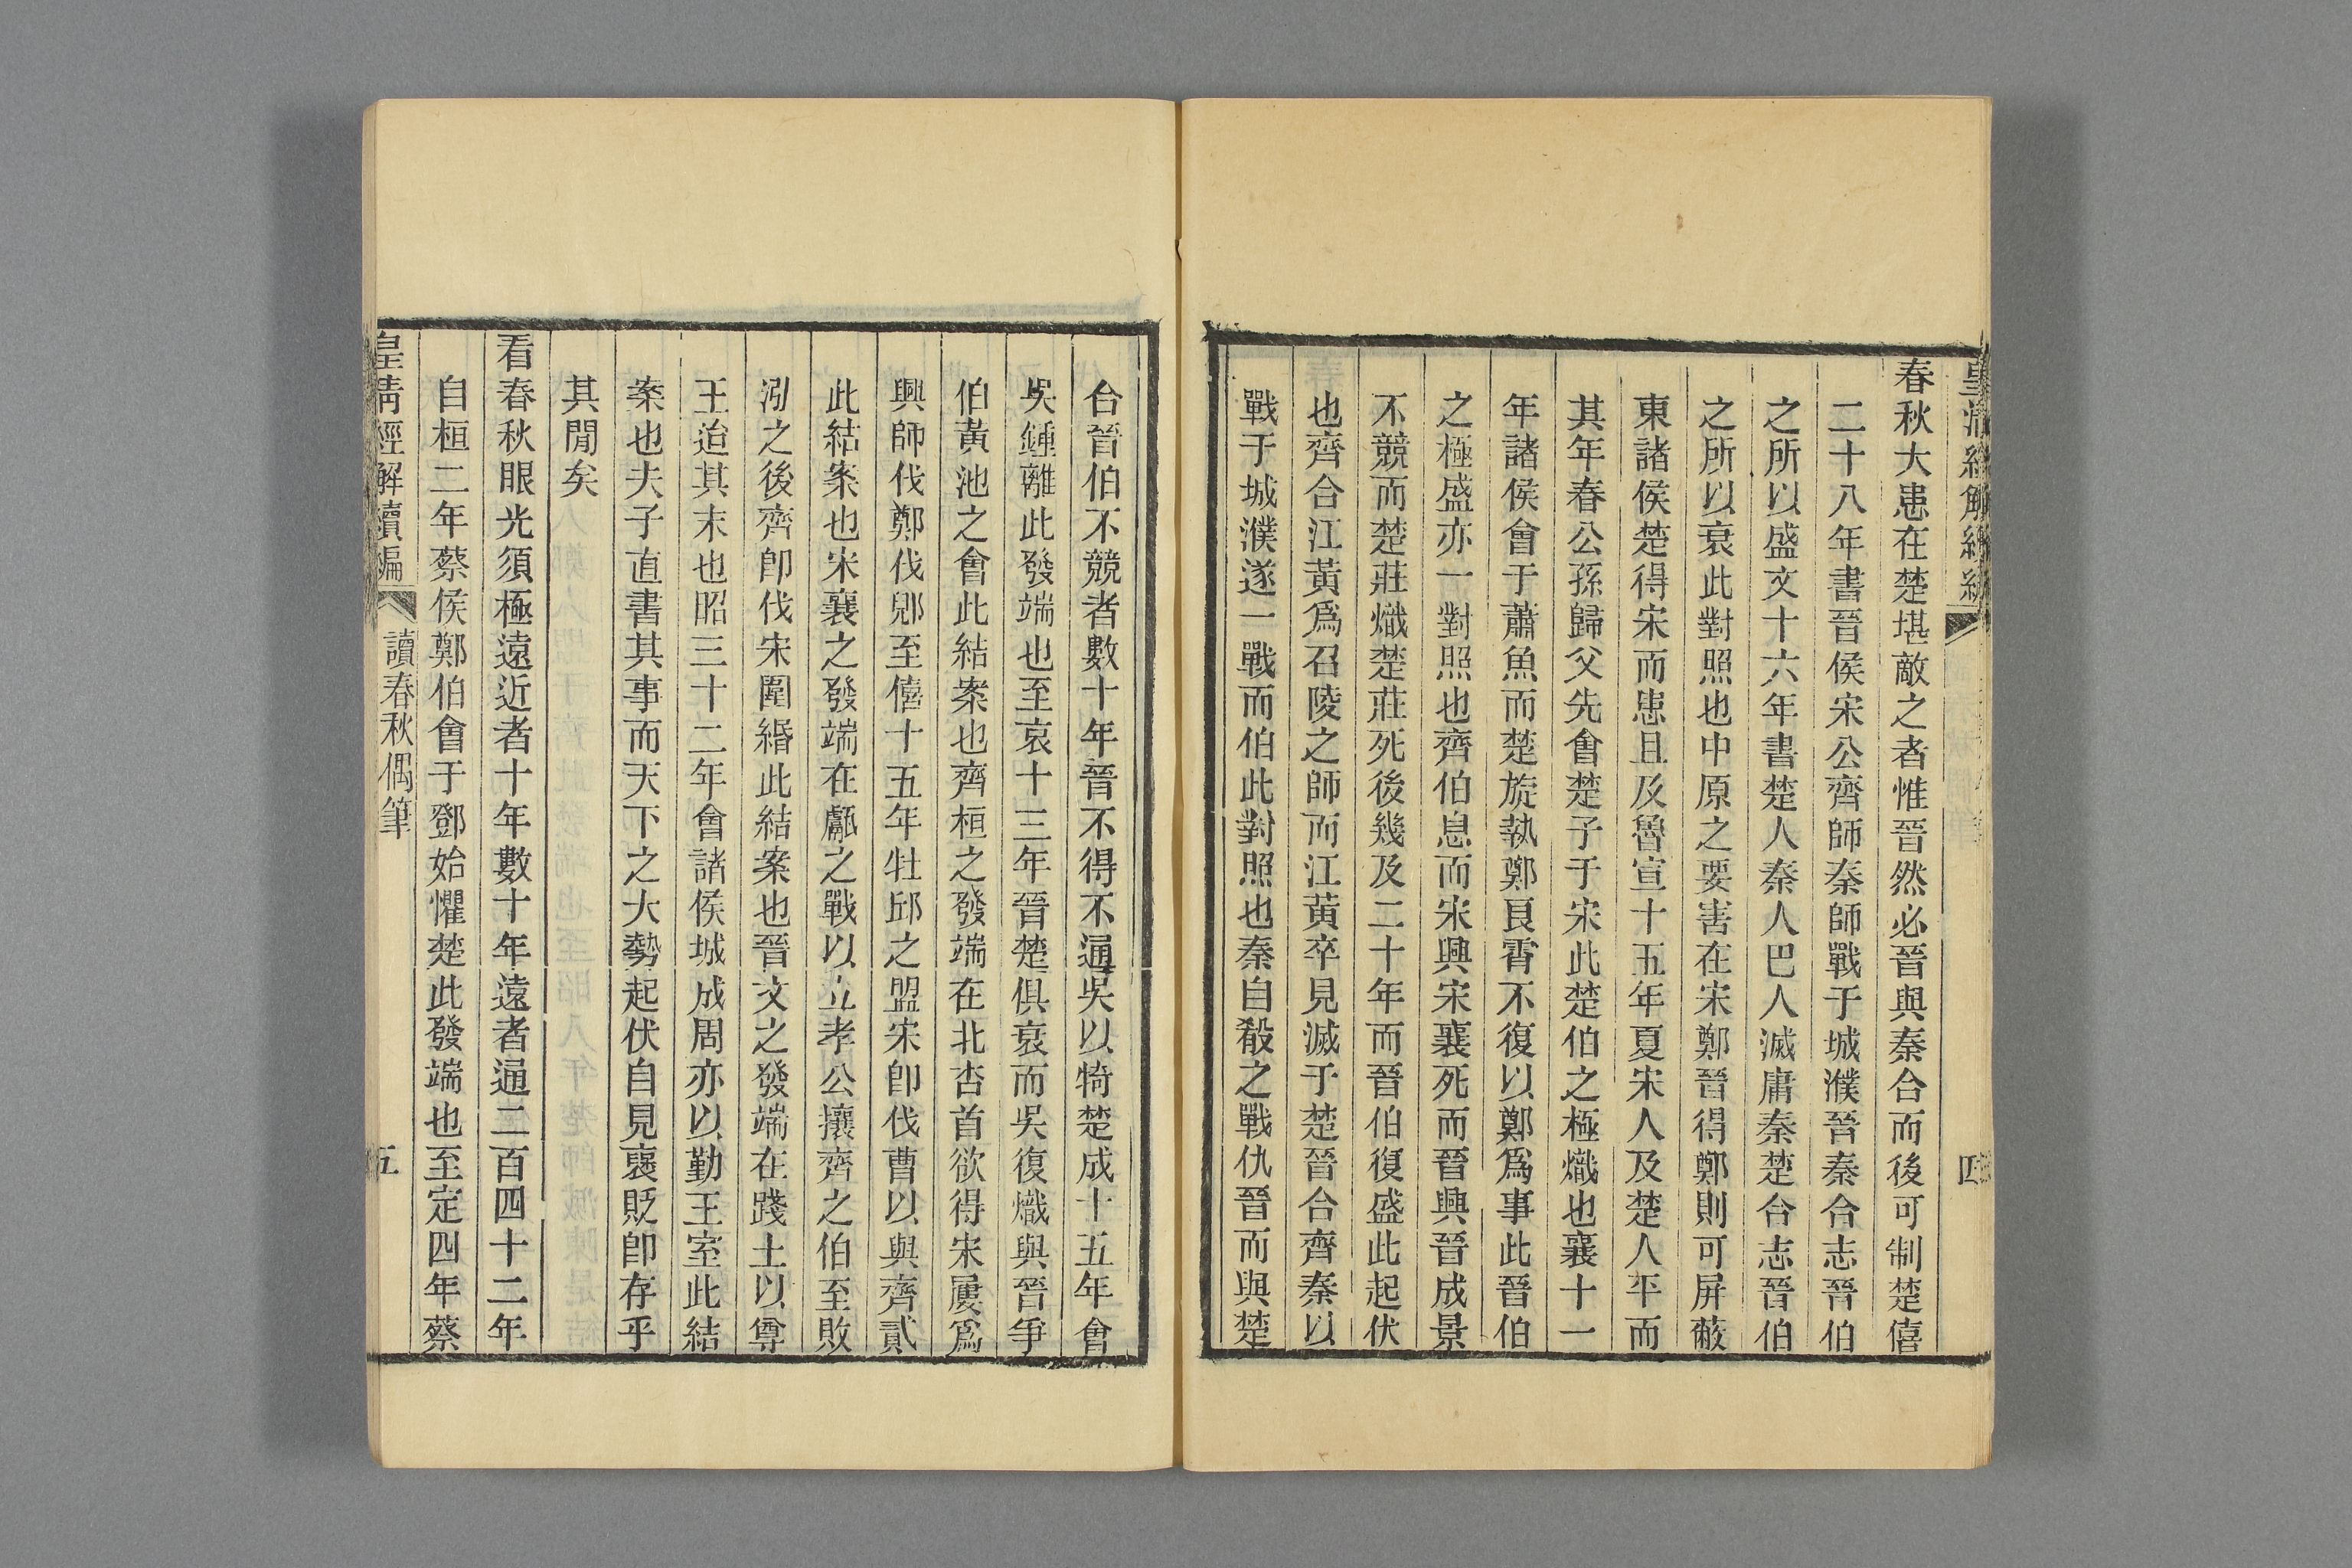 皇清經解續編
四
春秋大患在楚堪敵之者惟晉然必晉與秦合而後可制楚僖
二十八年書晉侯宋公齊師秦師戰于城濮晉秦合志晉伯
之所以盛文十六年書楚人秦人巴人滅庸秦楚合志晉伯
之所以衰此對照也中原之要害在宋鄭晉得鄭則可屏蔽
東諸侯楚得宋而患且及魯宣十五年夏宋人及楚人平而
其年春公孫歸父先會楚子于宋此楚伯之極熾也襄十一
年諸侯會于蕭魚而楚旋執鄭良霄不復以鄭爲事此晉伯
之極盛亦一對照也齊伯息而宋興宋襄死而晉興晉成景
不競而楚莊熾楚莊死後幾及二十年而晉伯復盛此起伏
也齊合江黃爲召陵之師而江黃卒見滅于楚晉合齊秦以
戰于城濮遂一戰而伯此對照也秦自殽之戰仇晉而與楚
合晉伯不競者數十年晉不得不通吳以犄楚成十五年會
吳鍾離此發端也至哀十三年晉楚俱衰而吳復熾與晉爭
伯黃池之會此結案也齊桓之發端在北杏首欲得宋屢爲
興師伐鄭伐郳至僖十五年牡邱之盟宋卽伐曹以與齊貳
此結案也宋襄之發端在甗之戰以立孝公攘齊之伯至敗
泓之後齊卽伐宋圍緡此結案也晉文之發端在踐土以尊
王迨其末也昭三十二年會諸侯城成周亦以勤王室此結
案也夫子直書其事而天下之大勢起伏自見褒貶卽存乎
其閒矣
看春秋眼光須極遠近者十年數十年遠者通二百四十二年
自桓二年蔡侯鄭伯會于鄧始懼楚此發端也至定四年蔡
皇清經解續編
讀春秋偶筆
五